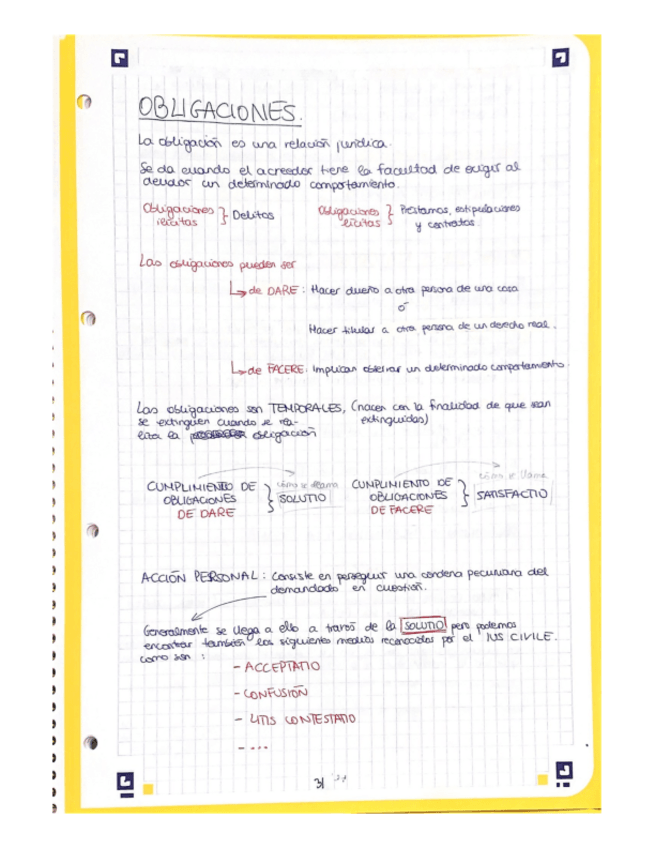 OBLIGACIONES.
La obligación es una relación jurídica.
Se da cuando el acreedor tiene la facultad de exigir al
deudor un determinado comportamiento.
Obligaciones ilícitas } Delitos
Obligaciones lícitas } Préstamos, estipulaciones y contratos.
Las obligaciones pueden ser
↳ de DARE: Hacer dueño a otra persona de una cosa
ó
Hacer titular a otra persona de un derecho real.
↳ de FACERE: Implican observar un determinado comportamiento.
Las obligaciones son TEMPORALES, (nacen con la finalidad de que sean extinguidas)
se extinguen cuando se rea-
liza la obligación
CUMPLIMIENTO DE OBLIGACIONES DE DARE } cómo se llama SOLUTIO
CUMPLIMIENTO DE OBLIGACIONES DE FACERE } cómo se llama SATISFACTIO
ACCIÓN PERSONAL: Consiste en perseguir una condena pecuniaria del
demandado en cuestión.
Generalmente se llega a ello a través de la SOLUTIO pero podemos
encontrar también los siguientes medios reconocidos por el IUS CIVILE.
como son:
- ACCEPTATIO
- CONFUSIÓN
- LITIS CONTESTATIO
- ....
31